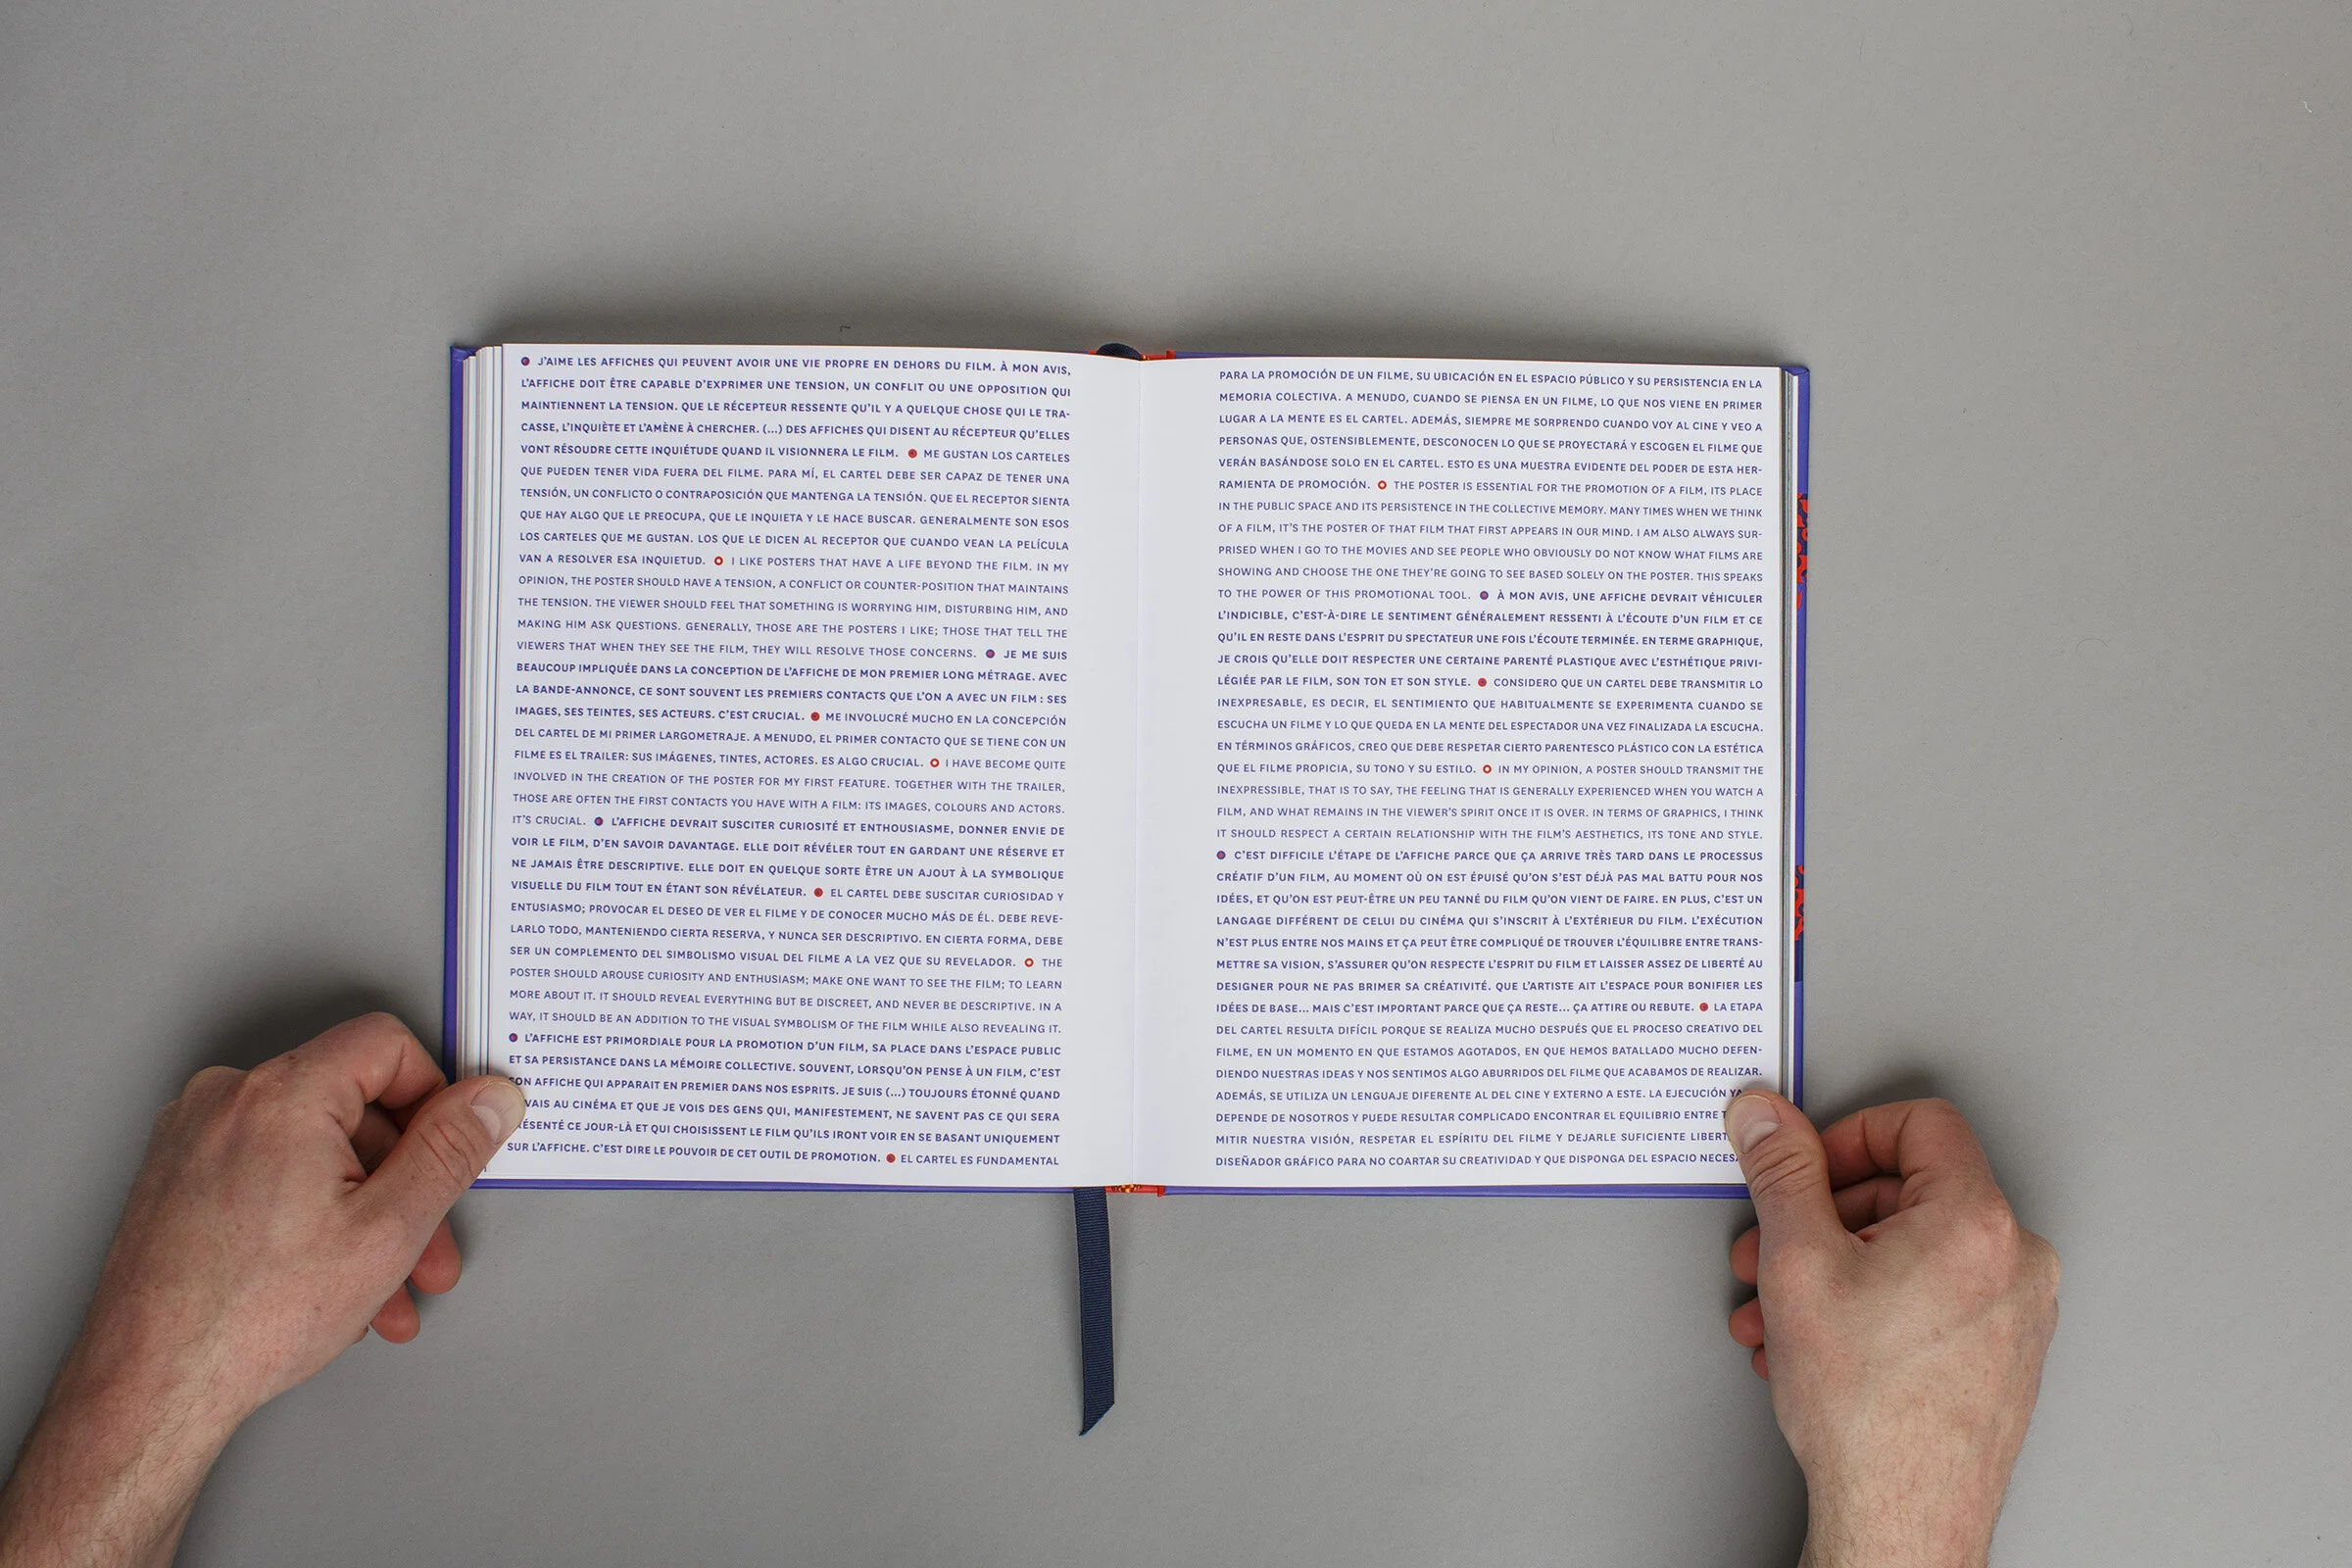 J'AIME LES AFFICHES QUI PEUVENT AVOIR UNE VIE PROPRE EN DEHORS DU FILM. À MON AVIS,
L'AFFICHE DOIT ÊTRE CAPABLE D'EXPRIMER UNE TENSION, UN CONFLIT OU UNE OPPOSITION QUI
MAINTIENNENT LA TENSION. QUE LE RÉCEPTEUR RESSENTE QU'IL Y A QUELQUE CHOSE QUI LE TRA-
CASSE, L'INQUIÈTE ET L'AMÈNE À CHERCHER. (...) DES AFFICHES QUI DISENT AU RÉCEPTEUR QU'ELLES
VONT RÉSOUDRE CETTE INQUIÉTUDE QUAND IL VISIONNERA LE FILM. ME GUSTAN LOS CARTELES
QUE PUEDEN TENER VIDA FUERA DEL FILME. PARA MÍ, EL CARTEL DEBE SER CAPAZ DE TENER UNA
TENSIÓN, UN CONFLICTO O CONTRAPOSICIÓN QUE MANTENGA LA TENSIÓN. QUE EL RECEPTOR SIENTA
QUE HAY ALGO QUE LE PREOCUPA, QUE LE INQUIETA Y LE HACE BUSCAR. GENERALMENTE SON ESOS
LOS CARTELES QUE ME GUSTAN. LOS QUE LE DICEN AL RECEPTOR QUE CUANDO VEAN LA PELÍCULA
VAN A RESOLVER ESA INQUIETUD. I LIKE POSTERS THAT HAVE A LIFE BEYOND THE FILM. IN MY
OPINION, THE POSTER SHOULD HAVE A TENSION, A CONFLICT OR COUNTER-POSITION THAT MAINTAINS
THE TENSION. THE VIEWER SHOULD FEEL THAT SOMETHING IS WORRYING HIM, DISTURBING HIM, AND
MAKING HIM ASK QUESTIONS. GENERALLY, THOSE ARE THE POSTERS I LIKE; THOSE THAT TELL THE
VIEWERS THAT WHEN THEY SEE THE FILM, THEY WILL RESOLVE THOSE CONCERNS. JE ME SUIS
BEAUCOUP IMPLIQUÉE DANS LA CONCEPTION DE L'AFFICHE DE MON PREMIER LONG MÉTRAGE. AVEC
LA BANDE-ANNONCE, CE SONT SOUVENT LES PREMIERS CONTACTS QUE L'ON A AVEC UN FILM : SES
IMAGES, SES TEINTES, SES ACTEURS. C'EST CRUCIAL. ME INVOLUCRÉ MUCHO EN LA CONCEPCIÓN
DEL CARTEL DE MI PRIMER LARGOMETRAJE. A MENUDO, EL PRIMER CONTACTO QUE SE TIENE CON UN
FILME ES EL TRAILER: SUS IMÁGENES, TINTES, ACTORES. ES ALGO CRUCIAL. I HAVE BECOME QUITE
INVOLVED IN THE CREATION OF THE POSTER FOR MY FIRST FEATURE. TOGETHER WITH THE TRAILER,
THOSE ARE OFTEN THE FIRST CONTACTS YOU HAVE WITH A FILM: ITS IMAGES, COLOURS AND ACTORS.
IT'S CRUCIAL. L'AFFICHE DEVRAIT SUSCITER CURIOSITÉ ET ENTHOUSIASME, DONNER ENVIE DE
VOIR LE FILM, D'EN SAVOIR DAVANTAGE. ELLE DOIT RÉVÉLER TOUT EN GARDANT UNE RÉSERVE ET
NE JAMAIS ÊTRE DESCRIPTIVE. ELLE DOIT EN QUELQUE SORTE ÊTRE UN AJOUT À LA SYMBOLIQUE
VISUELLE DU FILM TOUT EN ÉTANT SON RÉVÉLATEUR. EL CARTEL DEBE SUSCITAR CURIOSIDAD Y
ENTUSIASMO; PROVOCAR EL DESEO DE VER EL FILME Y DE CONOCER MUCHO MÁS DE ÉL. DEBE REVE-
LARLO TODO, MANTENIENDO CIERTA RESERVA, Y NUNCA SER DESCRIPTIVO. EN CIERTA FORMA, DEBE
SER UN COMPLEMENTO DEL SIMBOLISMO VISUAL DEL FILME A LA VEZ QUE SU REVELADOR. THE
POSTER SHOULD AROUSE CURIOSITY AND ENTHUSIASM; MAKE ONE WANT TO SEE THE FILM; TO LEARN
MORE ABOUT IT. IT SHOULD REVEAL EVERYTHING BUT BE DISCREET, AND NEVER BE DESCRIPTIVE. IN A
WAY, IT SHOULD BE AN ADDITION TO THE VISUAL SYMBOLISM OF THE FILM WHILE ALSO REVEALING IT.
L'AFFICHE EST PRIMORDIALE POUR LA PROMOTION D'UN FILM, SA PLACE DANS L'ESPACE PUBLIC
ET SA PERSISTANCE DANS LA MÉMOIRE COLLECTIVE. SOUVENT, LORSQU'ON PENSE À UN FILM, C'EST
SON AFFICHE QUI APPARAIT EN PREMIER DANS NOS ESPRITS. JE SUIS (...) TOUJOURS ÉTONNÉ QUAND
VAIS AU CINÉMA ET QUE JE VOIS DES GENS QUI, MANIFESTEMENT, NE SAVENT PAS CE QUI SERA
CE JOUR-LÀ ET QUI CHOISISSENT LE FILM QU'ILS IRONT VOIR EN SE BASANT UNIQUEMENT
SUR L'AFFICHE. C'EST DIRE LE POUVOIR DE CET OUTIL DE PROMOTION. EL CARTEL ES FUNDAMENTAL
PARA LA PROMOCIÓN DE UN FILME, SU UBICACIÓN EN EL ESPACIO PÚBLICO Y SU PERSISTENCIA EN LA
MEMORIA COLECTIVA. A MENUDO, CUANDO SE PIENSA EN UN FILME, LO QUE NOS VIENE EN PRIMER
LUGAR A LA MENTE ES EL CARTEL. ADEMÁS, SIEMPRE ME SORPRENDO CUANDO VOY AL CINE Y VEO A
PERSONAS QUE, OSTENSIBLEMENTE, DESCONOCEN LO QUE SE PROYECTARÁ Y ESCOGEN EL FILME QUE
VERÁN BASÁNDOSE SOLO EN EL CARTEL. ESTO ES UNA MUESTRA EVIDENTE DEL PODER DE ESTA HER-
RAMIENTA DE PROMOCIÓN. THE POSTER IS ESSENTIAL FOR THE PROMOTION OF A FILM, ITS PLACE
IN THE PUBLIC SPACE AND ITS PERSISTENCE IN THE COLLECTIVE MEMORY. MANY TIMES WHEN WE THINK
OF A FILM, IT'S THE POSTER OF THAT FILM THAT FIRST APPEARS IN OUR MIND. I AM ALSO ALWAYS SUR-
PRISED WHEN I GO TO THE MOVIES AND SEE PEOPLE WHO OBVIOUSLY DO NOT KNOW WHAT FILMS ARE
SHOWING AND CHOOSE THE ONE THEY'RE GOING TO SEE BASED SOLELY ON THE POSTER. THIS SPEAKS
TO THE POWER OF THIS PROMOTIONAL TOOL. À MON AVIS, UNE AFFICHE DEVRAIT VÉHICULER
L'INDICIBLE, C'EST-À-DIRE LE SENTIMENT GÉNÉRALEMENT RESSENTI À L'ÉCOUTE D'UN FILM ET CE
QU'IL EN RESTE DANS L'ESPRIT DU SPECTATEUR UNE FOIS L'ÉCOUTE TERMINÉE. EN TERME GRAPHIQUE,
JE CROIS QU'ELLE DOIT RESPECTER UNE CERTAINE PARENTÉ PLASTIQUE AVEC L'ESTHÉTIQUE PRIVI-
LÉGIÉE PAR LE FILM, SON TON ET SON STYLE. CONSIDERO QUE UN CARTEL DEBE TRANSMITIR LO
INEXPRESABLE, ES DECIR, EL SENTIMIENTO QUE HABITUALMENTE SE EXPERIMENTA CUANDO SE
ESCUCHA UN FILME Y LO QUE QUEDA EN LA MENTE DEL ESPECTADOR UNA VEZ FINALIZADA LA ESCUCHA.
EN TÉRMINOS GRÁFICOS, CREO QUE DEBE RESPETAR CIERTO PARENTESCO PLÁSTICO CON LA ESTÉTICA
QUE EL FILME PROPICIA, SU TONO Y SU ESTILO. IN MY OPINION, A POSTER SHOULD TRANSMIT THE
INEXPRESSIBLE, THAT IS TO SAY, THE FEELING THAT IS GENERALLY EXPERIENCED WHEN YOU WATCH A
FILM, AND WHAT REMAINS IN THE VIEWER'S SPIRIT ONCE IT IS OVER. IN TERMS OF GRAPHICS, I THINK
IT SHOULD RESPECT A CERTAIN RELATIONSHIP WITH THE FILM'S AESTHETICS, ITS TONE AND STYLE.
C'EST DIFFICILE L'ÉTAPE DE L'AFFICHE PARCE QUE ÇA ARRIVE TRÈS TARD DANS LE PROCESSUS
CRÉATIF D'UN FILM, AU MOMENT OÙ ON EST ÉPUISÉ QU'ON S'EST DÉJÀ PAS MAL BATTU POUR NOS
IDÉES, ET QU'ON EST PEUT-ÊTRE UN PEU TANNÉ DU FILM QU'ON VIENT DE FAIRE. EN PLUS, C'EST UN
LANGAGE DIFFÉRENT DE CELUI DU CINÉMA QUI S'INSCRIT À L'EXTÉRIEUR DU FILM. L'EXÉCUTION
N'EST PLUS ENTRE NOS MAINS ET ÇA PEUT ÊTRE COMPLIQUÉ DE TROUVER L'ÉQUILIBRE ENTRE TRANS-
METTRE SA VISION, S'ASSURER QU'ON RESPECTE L'ESPRIT DU FILM ET LAISSER ASSEZ DE LIBERTÉ AU
DESIGNER POUR NE PAS BRIMER SA CRÉATIVITÉ. QUE L'ARTISTE AIT L'ESPACE POUR BONIFIER LES
IDÉES DE BASE... MAIS C'EST IMPORTANT PARCE QUE ÇA RESTE... ÇA ATTIRE OU REBUTE. LA ETAPA
DEL CARTEL RESULTA DIFÍCIL PORQUE SE REALIZA MUCHO DESPUÉS QUE EL PROCESO CREATIVO DEL
FILME, EN UN MOMENTO EN QUE ESTAMOS AGOTADOS, EN QUE HEMOS BATALLADO MUCHO DEFEN-
DIENDO NUESTRAS IDEAS Y NOS SENTIMOS ALGO ABURRIDOS DEL FILME QUE ACABAMOS DE REALIZAR.
ADEMÁS, SE UTILIZA UN LENGUAJE DIFERENTE AL DEL CINE Y EXTERNO A ESTE. LA EJECUCIÓN
DEPENDE DE NOSOTROS Y PUEDE RESULTAR COMPLICADO ENCONTRAR EL EQUILIBRIO ENTRE
MITIR NUESTRA VISIÓN, RESPETAR EL ESPÍRITU DEL FILME Y DEJARLE SUFICIENTE
DISEÑADOR GRÁFICO PARA NO COARTAR SU CREATIVIDAD Y QUE DISPONGA DEL ESPACIO